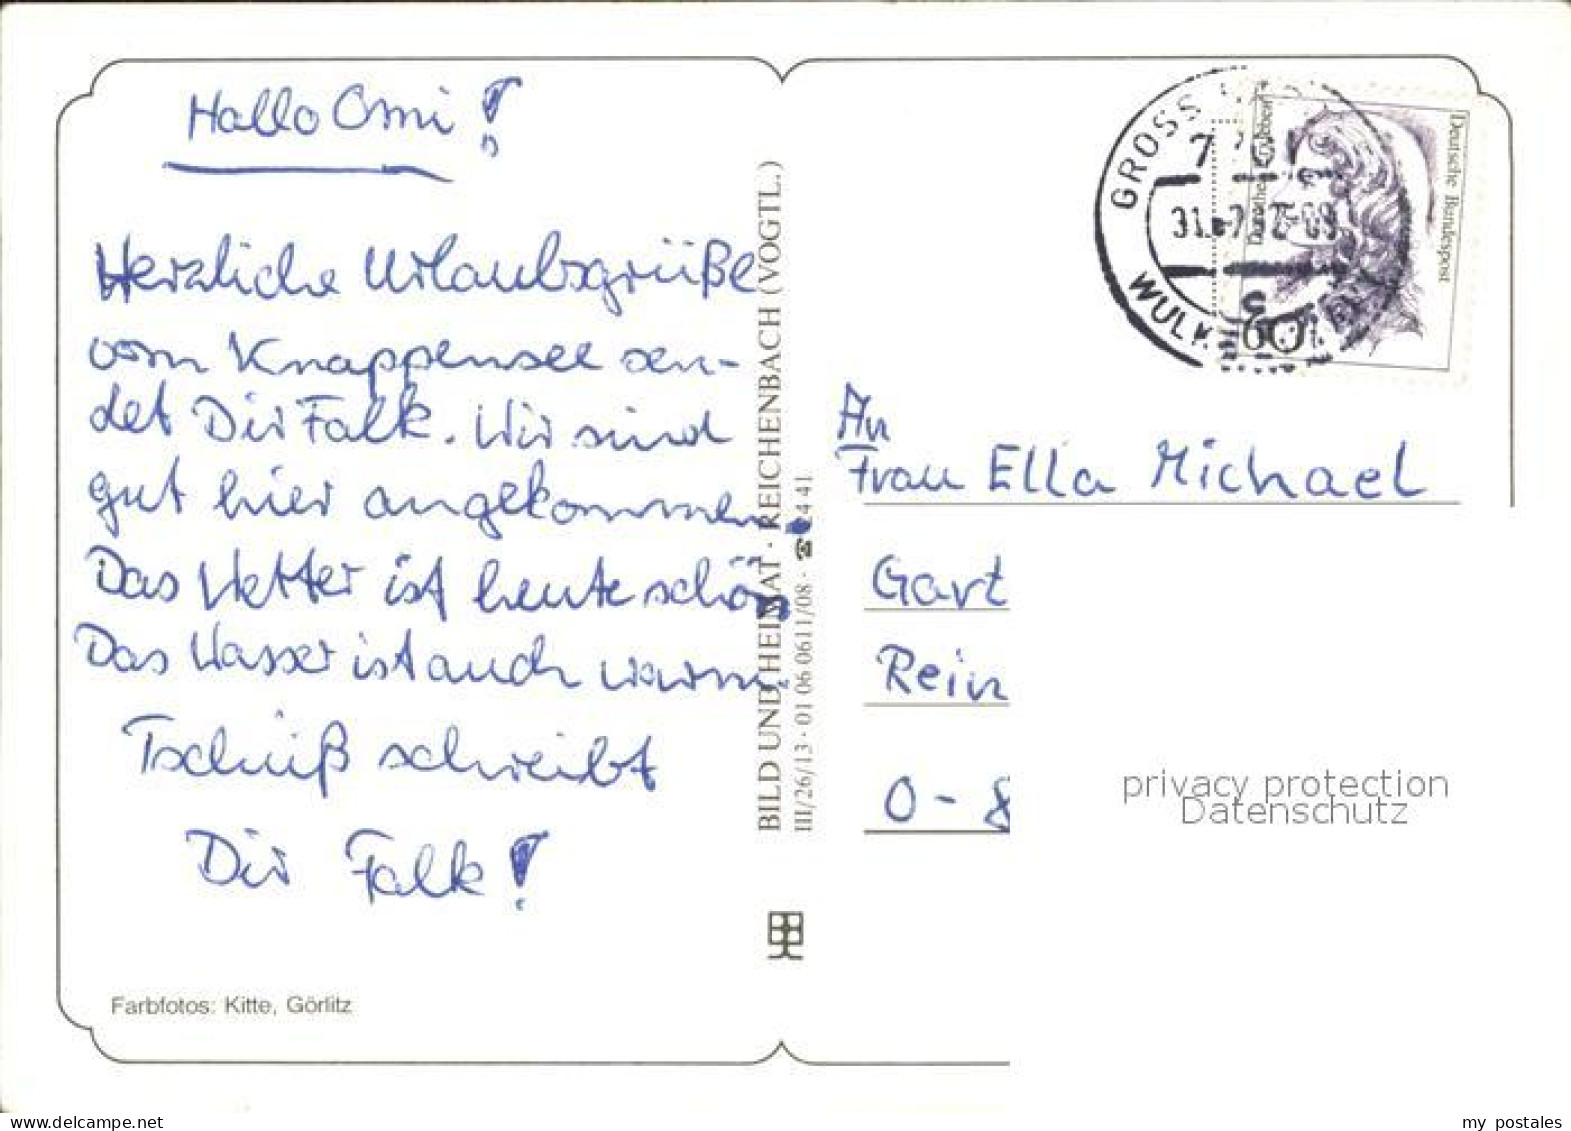 Hallo Omi!
Herzliche Urlaubsgrüße
vom Knappensee sen-
det Dir Falk. Wir sind
gut hier angekommen.
Das Wetter ist heute schön
Das Wasser ist auch warm.
Tschüß schreibt
Dir Falk!
Farbfotos: Kitte, Görlitz
BILD UND HEIMAT · REICHENBACH (VOGTL.)
III/26/13 · 01 06 0611/08 · ☎ 44 41
GROSS
WULK
Deutsche Bundespost
60
An
Frau Ella Michael
Gart
Rein
O-8
privacy protection
Datenschutz
www.delcampe.net
my_postales